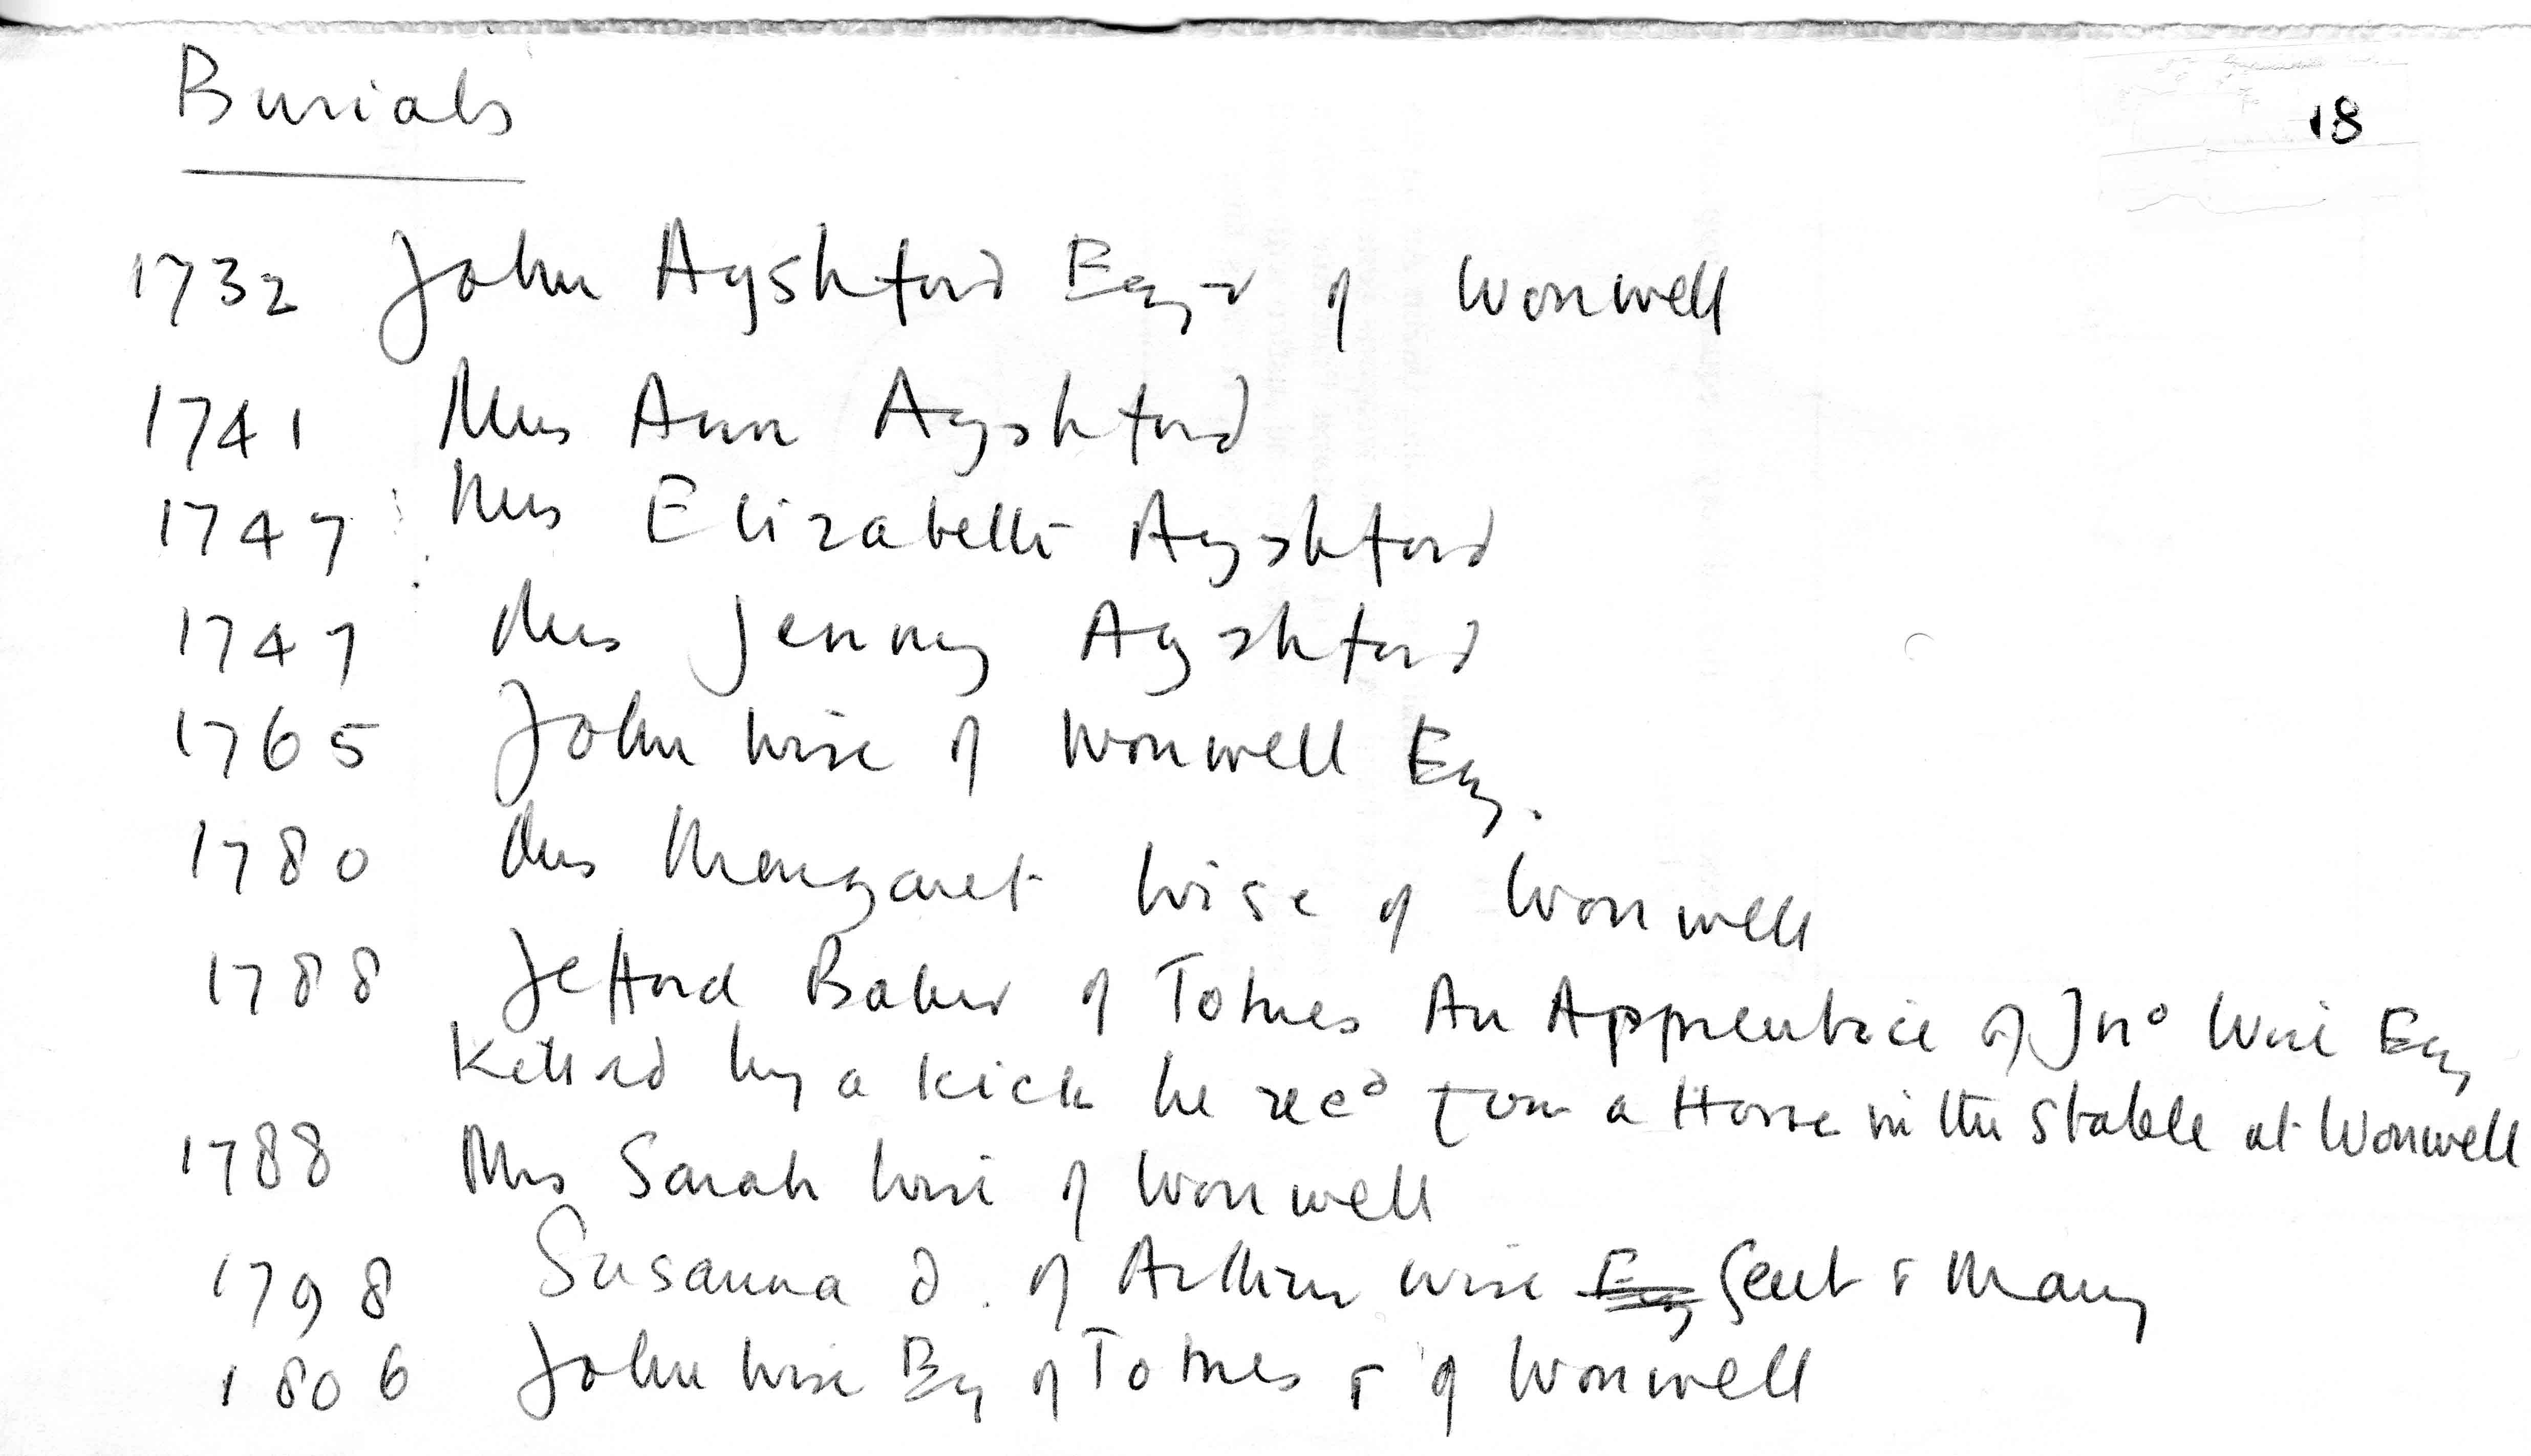 Burials
18
1732 John Ayshford Esqr of Wonwell
1741 Mrs Ann Ayshford
1747 Mrs Elizabeth Ayshford
1747 Mrs Jenny Ayshford
1765 John Wise of Wonwell Esq.
1780 Mrs Margaret Wise of Wonwell
1788 Jefford Baker of Totnes An Apprentice of Jnº Wise Esq
Killed by a kick he recd from a Horse in the Stable at Wonwell
1788 Mrs Sarah Wise of Wonwell
1798 Susanna d. of Arthur Wise Esq Gent & Mary
1806 John Wise Esq of Totnes & of Wonwell